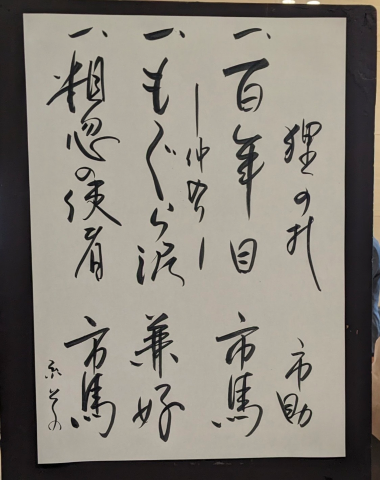 狸の札 市助
一、百年目 市馬
―仲入り―
一、もぐら泥 兼好
一、粗忽の使者 市馬